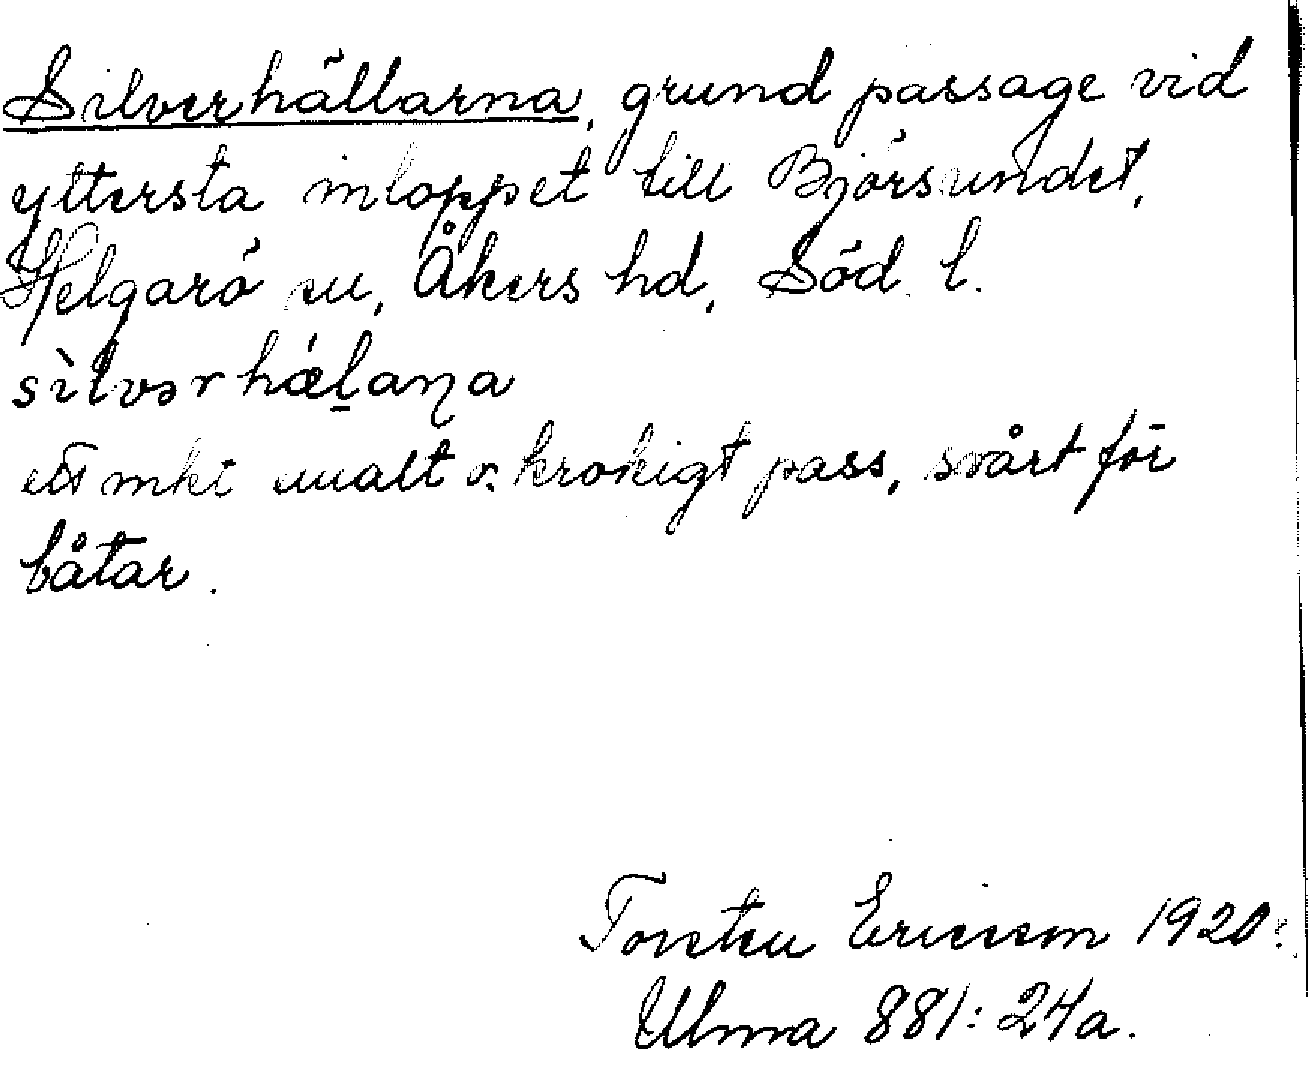 Silverhällarna, grund passage vid
yttersta inloppet till Björsundet,
Helgarö sn, Åkers hd, Söd. l.
sìlvərhǽl̠aɳa
ett mkt smalt o. krokigt pass, svårt för
båtar.
Torsten Ericsson 1920?
Ulma 881:24a.